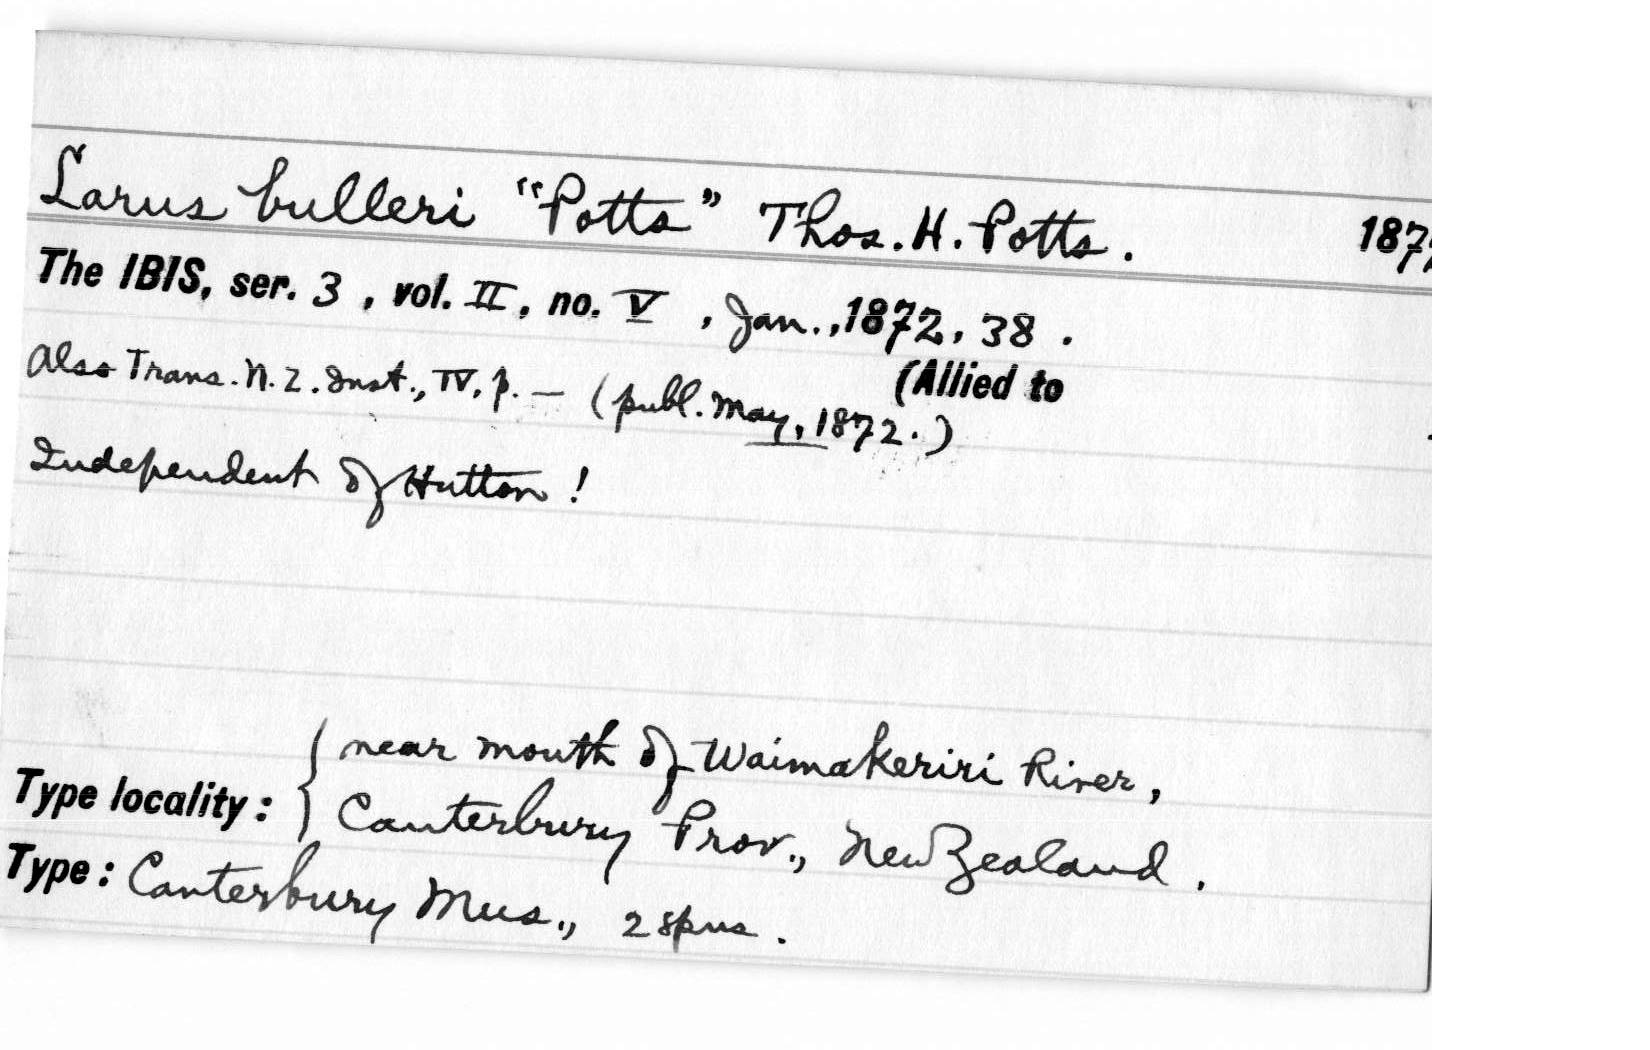 Larus bulleri "Potts" Thos. H. Potts. 1872
The IBIS, ser. 3, vol. II, no. V, Jan., 1872, 38.
(Allied to
Also Trans. N. Z. Inst., IV, p. — (publ. May, 1872.)
Independent of Hutton!
Type locality: { near mouth of Waimakeriri River,
Canterbury Prov., New Zealand.
Type: Canterbury Mus., 2 spns.